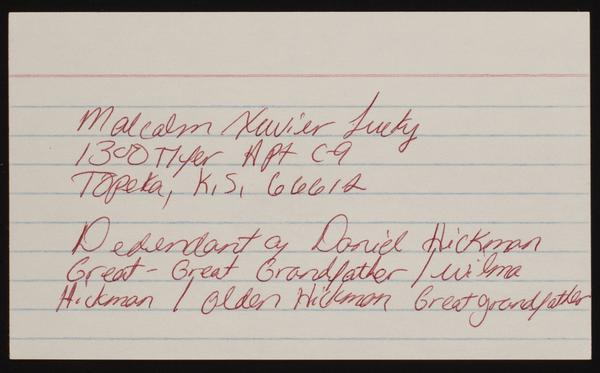 Malcolm Xavier Lucky
1300 Tyler Apt C-9
Topeka, K.S, 66612
Decendant of Daniel Hickman
Great-Great Grandfather / Wilma
Hickman / Olden Hickman Great grandfather